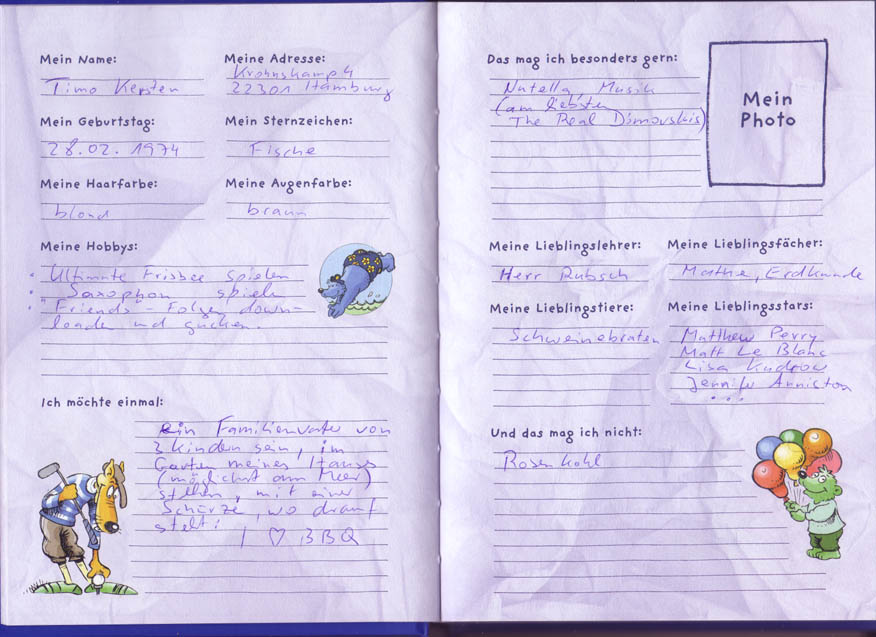 Mein Name:
Timo Kersten
Meine Adresse:
Krohnskamp 4
22301 Hamburg
Mein Geburtstag:
28.02.1974
Mein Sternzeichen:
Fische
Meine Haarfarbe:
blond
Meine Augenfarbe:
braun
Meine Hobbys:
• Ultimate Frisbee spielen
• Saxophon spielen
• "Friends"-Folgen down-
loaden und gucken.
Ich möchte einmal:
ein Familienvater von
3 Kindern sein, im
Garten meines Hauses
(möglichst am Meer)
stehen, mit einer
Schürze, wo drauf
steht:
I ♡ BBQ
Das mag ich besonders gern:
Nutella, Musik
(am liebsten
The Real Dimovskis)
Mein
Photo
Meine Lieblingslehrer:
Herr Rubsch
Meine Lieblingsfächer:
Mathe, Erdkunde
Meine Lieblingstiere:
Schweinebraten
Meine Lieblingsstars:
Matthew Perry
Matt Le Blanc
Lisa Kudrow
Jennifer Anniston
...
Und das mag ich nicht:
Rosenkohl